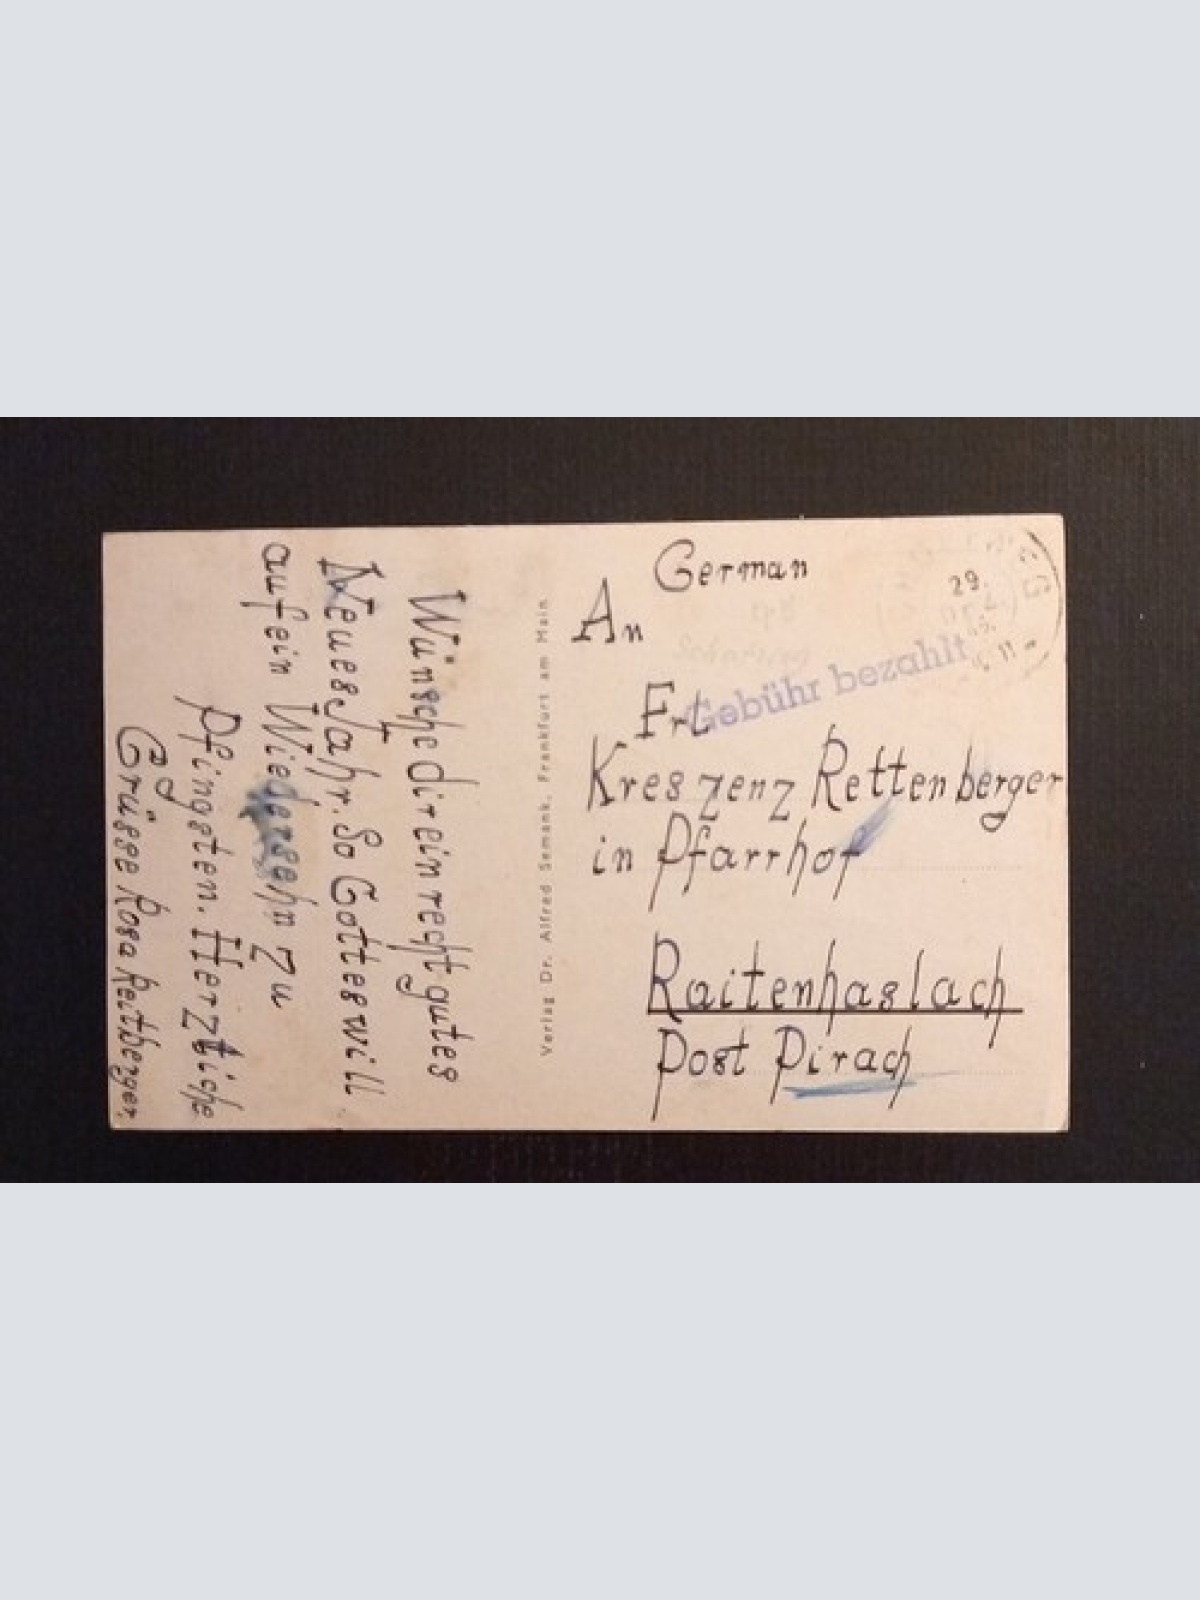 Wünsche dir ein recht gutes
Neues Jahr. So Gottes will
auf ein Wiedersehn zu
Pfingsten. Herzliche
Grüsse Rosa Reitberger.
Verlag Dr. Alfred Semank, Frankfurt am Main
German
An
Frl
Kreszenz Rettenberger
in Pfarrhof
Raitenhaslach
Post Pirach
Gebühr bezahlt
29.